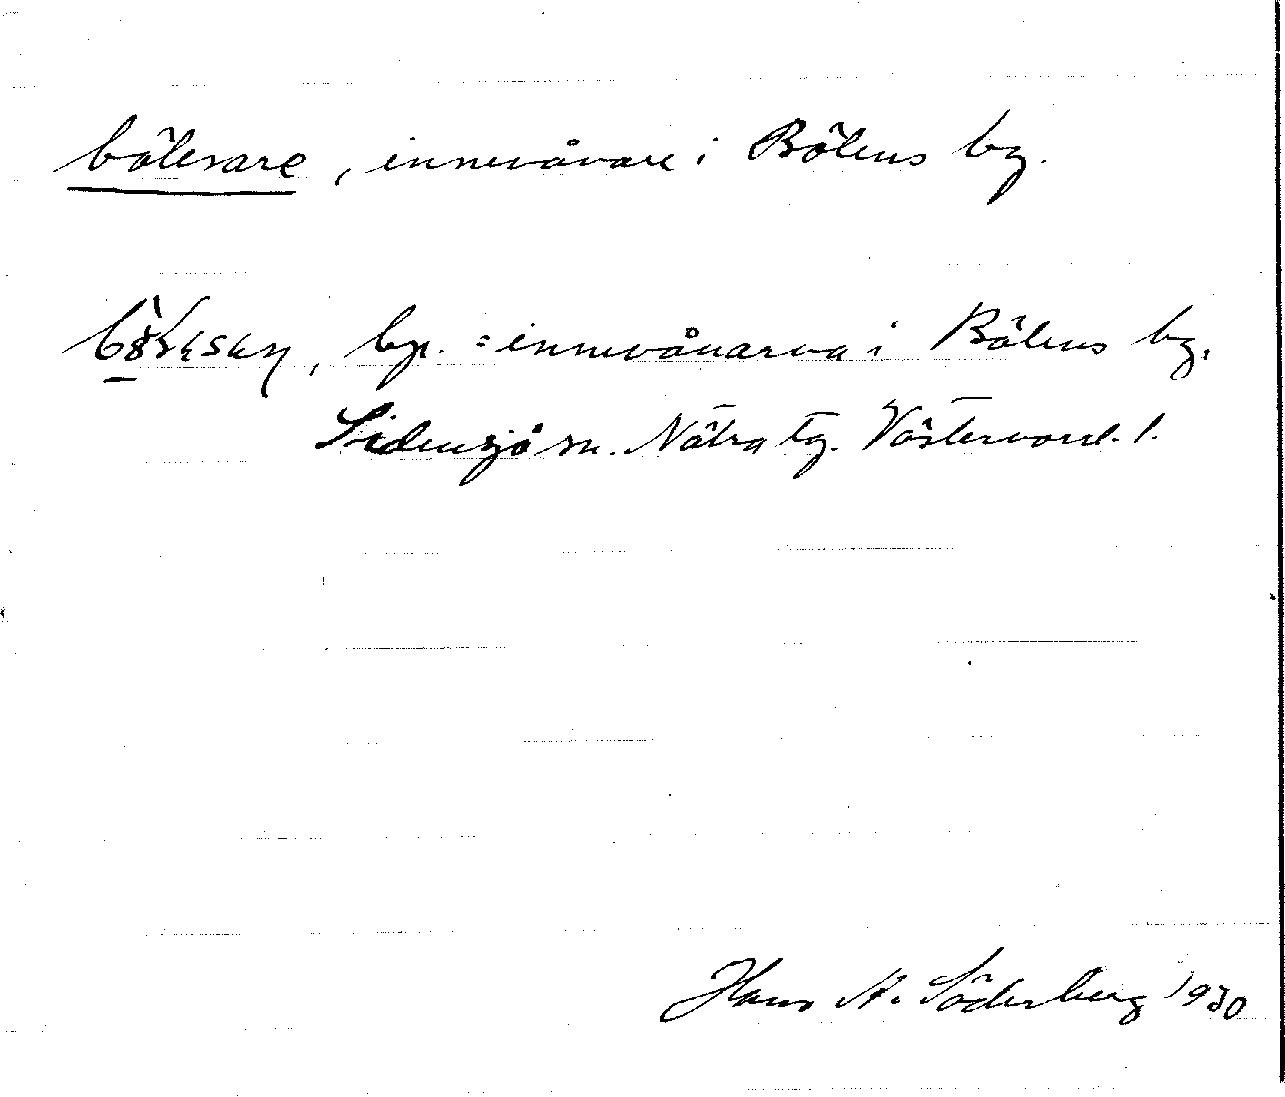 bölesare, innevånare i Bölens by.
bp. = innevånarna i Bölens by,
Sidensjö sn. Nätra tg. Västernorrl. l.
Hans A. Söderberg 1930